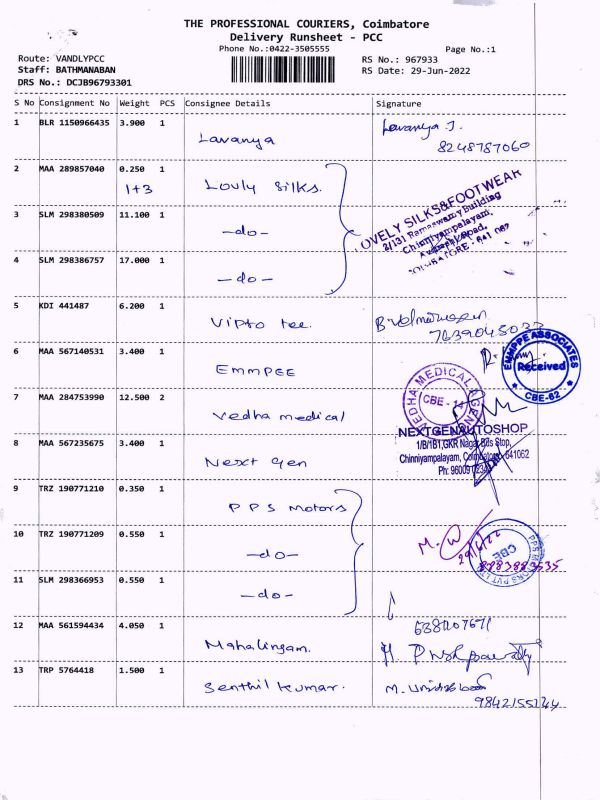 THE PROFESSIONAL COURIERS, Coimbatore
Delivery Runsheet - PCC
Phone No.:0422-3505555
Page No.:1
Route: VANDLYPCC
RS No.: 967933
Staff: BATHMANABAN
RS Date: 29-Jun-2022
DRS No.: DCJB96793301
S No Consignment No Weight PCS Consignee Details Signature
1 BLR 1150966435 3.900 1
Lavanya
Lavanya J.
8248787060
2 MAA 289857040 0.250 1
1+3 Lovly Silks.
LOVELY SILKS&FOOTWEAR
2/131 Rameswamy Building
Chinniyampalayam,
3 SLM 298380509 11.100 1
-do-
4 SLM 298386757 17.000 1
-do-
5 KDI 441487 6.200 1
Vipto tee.
6 MAA 567140531 3.400 1
EMMPEE
EMMPPE ASSOCIATES
Received
CBE-62
7 MAA 284753990 12.500 2
Vedha medical
VEDHA MEDICAL
CBE - 14
8 MAA 567235675 3.400 1
Next gen
NEXTGENAUTOSHOP
1/B/1B1,GKR Nagar Bus Stop,
Chinniyampalayam, Coimbatore 641062
9 TRZ 190771210 0.350 1
PPS Motors
10 TRZ 190771209 0.550 1
-do-
29/6/22
CBE
11 SLM 298366953 0.550 1
-do-
12 MAA 561594434 4.050 1
Mahalingam.
13 TRP 5764418 1.500 1
Senthil Kumar.